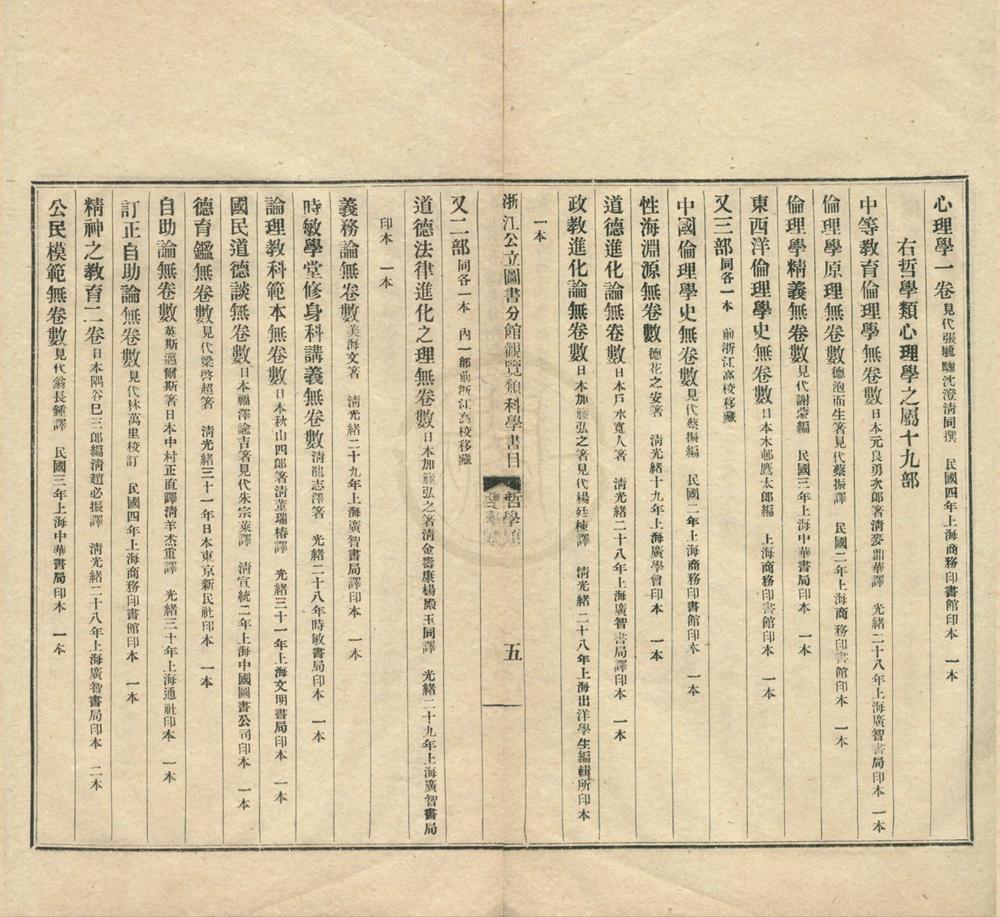 心理學一卷見代張毓驄沈澄淸同撰　民國四年上海商務印書館印本　一本
右哲學類心理學之屬十九部
中等敎育倫理學無卷數日本元良勇次郞箸淸麥鼎華譯　光緒二十八年上海廣智書局印本　一本
倫理學原理無卷數德泡而生箸見代蔡振譯　民國二年上海商務印書館印本　一本
倫理學精義無卷數見代謝蒙編　民國三年上海中華書局印本　一本
東西洋倫理學史無卷數日本木邨鷹太郞編　上海商務印書館印本　一本
又三部同各一本　前浙江高校移藏
中國倫理學史無卷數見代蔡振編　民國二年上海商務印書館印本　一本
性海淵源無卷數德花之安箸　淸光緒十九年上海廣學會印本　一本
道德進化論無卷數日本戶水寬人箸　淸光緒二十八年上海廣智書局譯印本　一本
政敎進化論無卷數日本加藤弘之箸見代楊廷棟譯　淸光緒二十八年上海出洋學生編輯所印本
一本
浙江公立圖書分館觀覽類科學書目　哲學類　五
又二部同各一本　內一部前浙江高校移藏
道德法律進化之理無卷數日本加藤弘之箸淸金壽康楊殿玉同譯　光緒二十九年上海廣智書局
印本　一本
義務論無卷數美海文箸　淸光緒二十九年上海廣智書局譯印本　一本
時敏學堂修身科講義無卷數淸龍志澤箸　光緒二十八年時敏書局印本　一本
論理敎科範本無卷數日本秋山四郞箸淸董瑞椿譯　光緒三十一年上海文明書局印本　一本
國民道德談無卷數日本福澤諭吉箸見代朱宗萊譯　淸宣統二年上海中國圖書公司印本　一本
德育鑑無卷數見代梁啓超箸　淸光緒三十一年日本東京新民社印本　一本
自助論無卷數英斯邁爾斯箸日本中村正直譯淸羊杰重譯　光緒三十年上海通社印本　一本
訂正自助論無卷數見代林萬里校訂　民國四年上海商務印書館印本　一本
精神之敎育二卷日本隅谷巳三郞編淸趙必振譯　淸光緒二十八年上海廣智書局印本　二本
公民模範無卷數見代翁長鍾譯　民國三年上海中華書局印本　一本